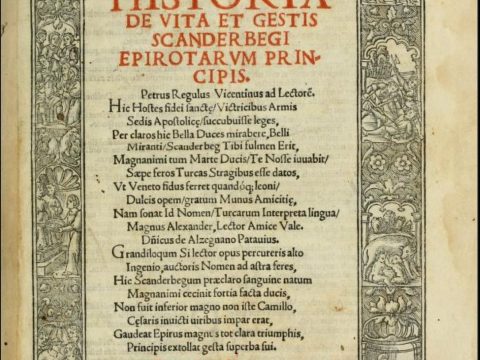 HISTORIA
DE VITA ET GESTIS
SCANDERBEGI
EPIROTARVM PRIN-
CIPIS.
Petrus Regulus Vicentinus ad Lectorē.
Hic Hostes fidei sanctę/Victricibus Armis
Sedis Apostolicę/succubuisse leges,
Per claros hic Bella Duces mirabere, Belli
Miranti/Scanderbeg Tibi fulmen Erit,
Magnanimi tum Marte Ducis/Te Nosse iuuabit/
Sæpe feros Turcas Stragibus esse datos,
Vt Veneto fidus ferret quandóq; leoni/
Dulcis opem/gratum Munus Amicitię,
Nam sonat Id Nomen/Turcarum Interpreta lingua/
Magnus Alexander, Lector Amice Vale.
Dñicus de Alzegnano Patauius.
Grandiloquum Si lector opus percurreris alto
Ingenio, auctoris Nomen ad astra feres,
Hic Scanderbegum præclaro sanguine natum
Magnanimi cecinit fortia facta ducis,
Non fuit inferior magno non iste Camillo,
Cęsaris inuicti uiribus impar erat,
Gaudeat Epirus magnus tot clara triumphis,
Principis extollat gesta superba sui.